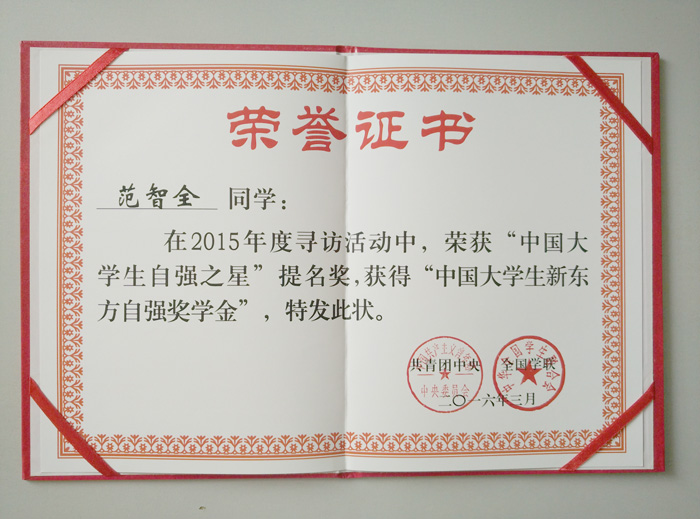 荣誉证书
范智全 同学：
在2015年度寻访活动中，荣获“中国大
学生自强之星”提名奖，获得“中国大学生新东
方自强奖学金”，特发此状。
共青团中央 全国学联
中央委员会
二〇一六年三月